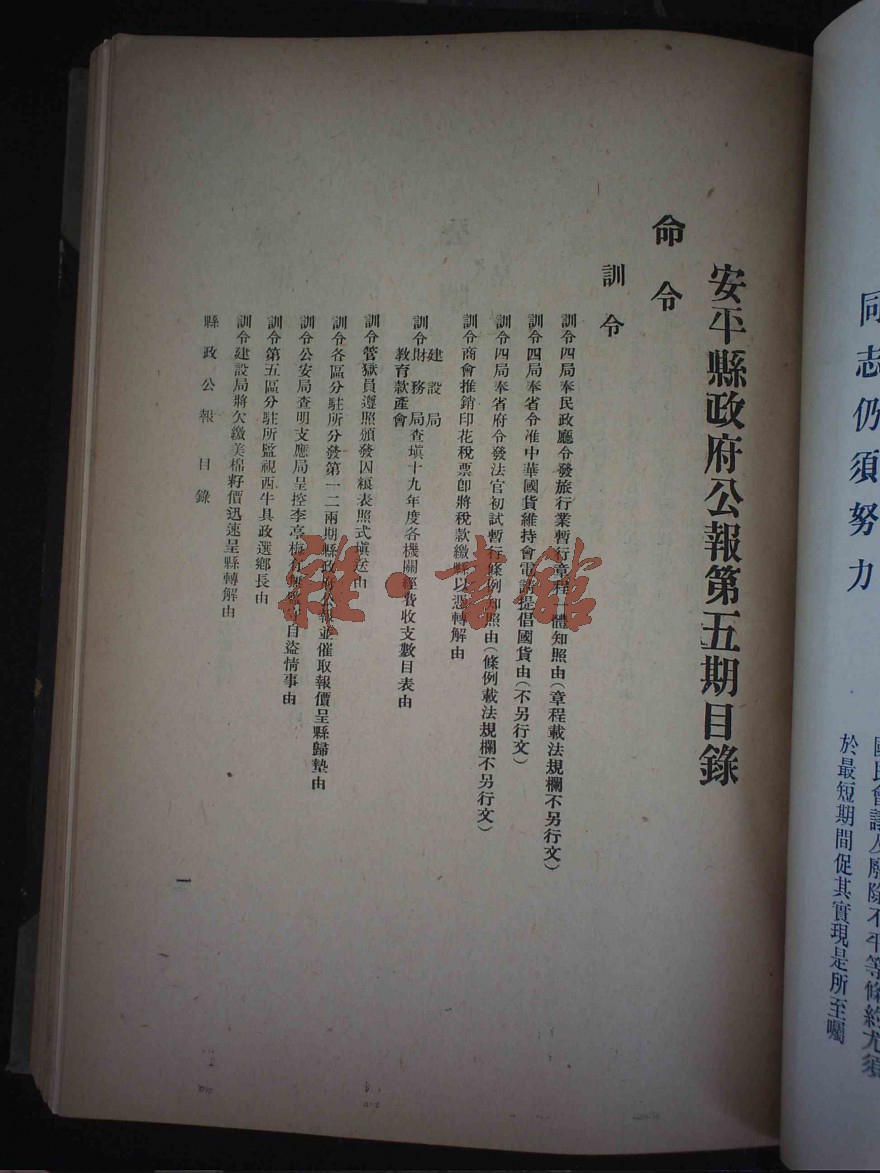 同志仍須努力
於最短期間促其實現是所至囑
安平縣政府公報第五期目錄
命令
訓令
訓令四局奉民政廳令發旅行業暫行章程一體知照由(章程載法規欄不另行文)
訓令四局奉省令准中華國貨維持會電請提倡國貨由(不另行文)
訓令四局奉省府令發法官初試暫行條例知照由(條例載法規欄不另行文)
訓令商會推銷印花稅票卽將稅款繳縣以憑轉解由
訓令建設局財務局教育款產會查塡十九年度各機關經費收支數目表由
訓令管獄員遵照頒發囚糧表照式塡送由
訓令各區分駐所分發第一二兩期縣政府公報並催取報價呈縣歸墊由
訓令公安局查明支應局呈控李亭梅有自盜情事由
訓令第五區分駐所監視西牛具改選鄉長由
訓令建設局將欠繳美棉籽價迅速呈縣轉解由
縣政公報 目錄
一
雜·書館